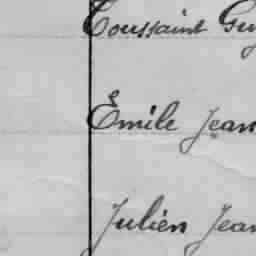 Toussaint Guy
Émile Jean
Julien Jean